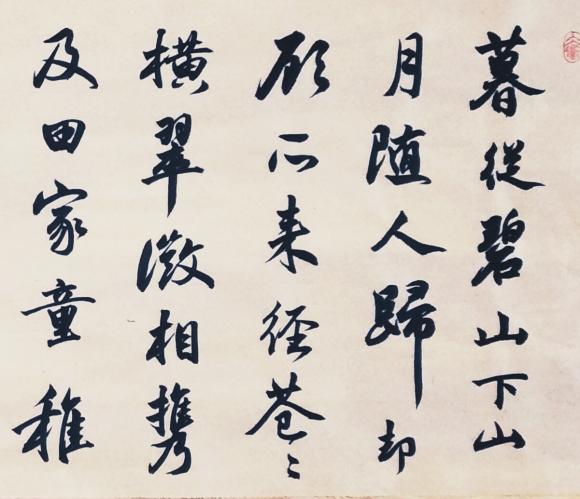 暮從碧山下山
月隨人歸却
顧所來徑蒼〻
橫翠微相攜
及田家童稚